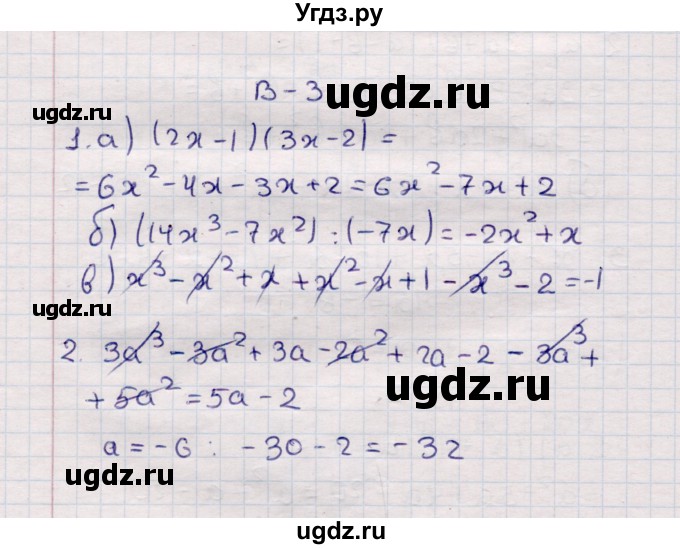 Угдз.ру
В - 3
ugdz.ru
ugdz.ru
1. а) (2x - 1)(3x - 2) =
= 6x² - 4x - 3x + 2 = 6x² - 7x + 2
б) (14x³ - 7x²) : (-7x) = -2x² + x
в) x³ - x² + x + x² - x + 1 - x³ - 2 = -1
ugdz.ru
2. 3a³ - 3a² + 3a - 2a² + 2a - 2 - 3a³ +
+ 5a² = 5a - 2
ugdz.ru
a = -6 : -30 - 2 = -32
ugdz.ru
ugdz.ru